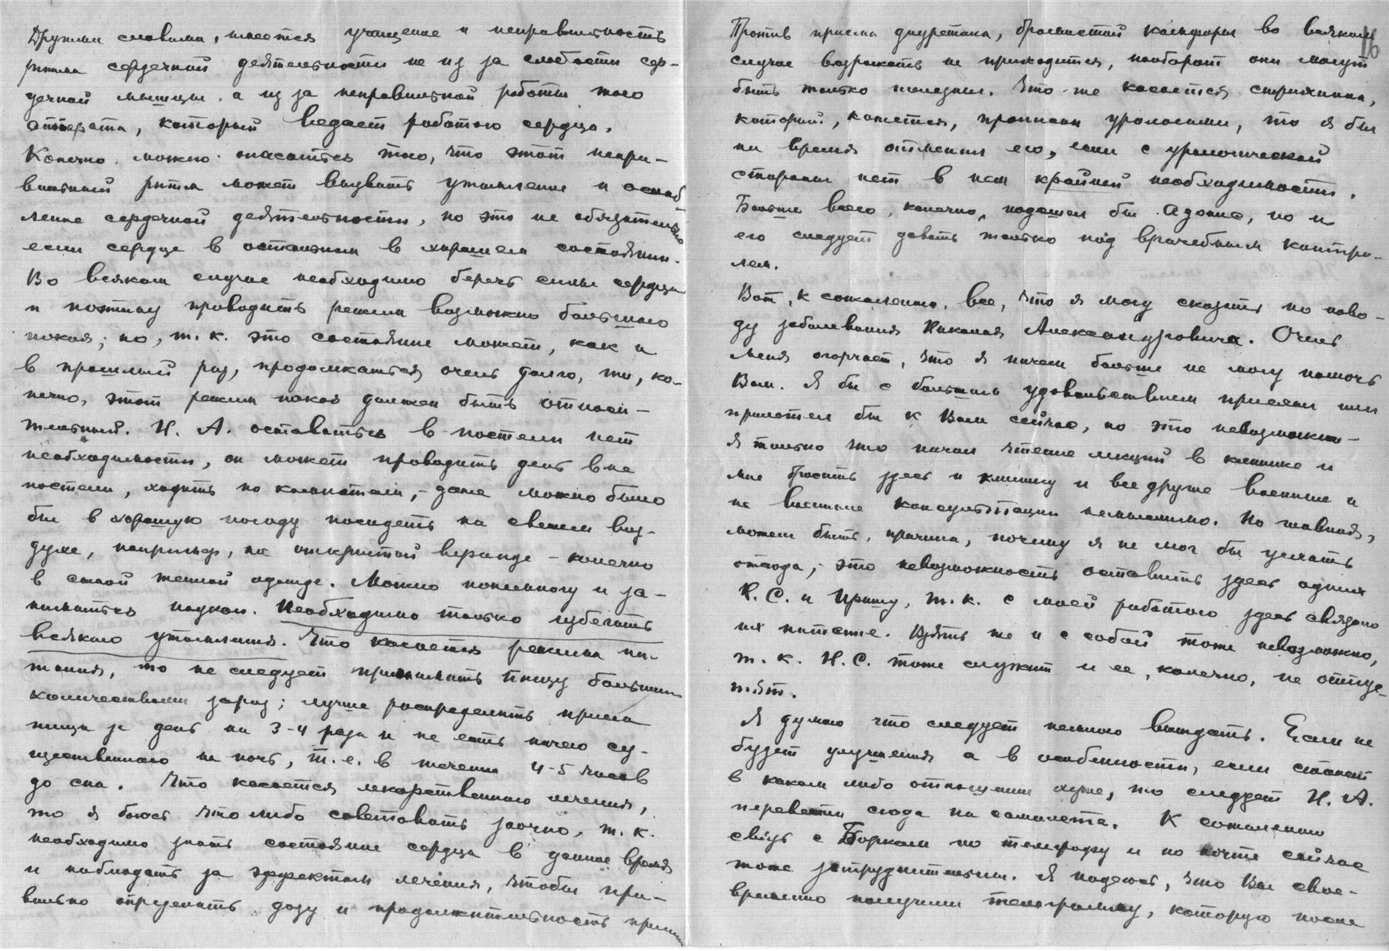 Другими словами, имеется учащение и неправильность
ритма сердечной деятельности не из за слабости сер-
дечной мышцы, а из за неправильной работы того
аппарата, который ведает работою сердца.
Конечно, можно опасаться того, что этот непра-
вильный ритм может вызвать утомление и ослаб-
ление сердечной деятельности, но это не обязательно
если сердце в остальном в хорошем состоянии.
Во всяком случае необходимо беречь силы сердца
и поэтому проводить режим возможно большего
покоя; но, т. к. это состояние может, как и
в прошлый раз, продолжаться очень долго, то, ко-
нечно, этот режим покоя должен быть относи-
тельный. Н. А. оставаться в постели нет
необходимости, он может проводить день вне
постели, ходить по комнатам, - даже можно было
бы в хорошую погоду посидеть на свежем воз-
духе, например, на открытой веранде - конечно
в самой теплой одежде. Можно понемногу и за-
ниматься наукой. Необходимо только избегать
всякого утомления. Что касается режима пи-
тания, то не следует принимать пищу большим
количеством зараз; лучше распределить прием
пищи за день на 3-4 раза и не есть ничего су-
щественного на ночь, т. е. в течении 4-5 часов
до сна. Что касается лекарственного лечения,
то я боюсь что либо советовать заочно, т. к.
необходимо знать состояние сердца в данное время
и наблюдать за эффектом лечения, чтобы пра-
вильно определить дозу и продолжительность прием
16
Против приема диуретина, бромистой камфоры во всяком
случае возражать не приходится, наоборот они могут
быть только полезны. Что-же касается стрихнина,
который, кажется, прописан урологами, то я бы
на время отменил его, если с урологической
стороны нет в нем крайней необходимости.
Больше всего, конечно, подошел бы Адонис, но и
его следует давать только под врачебным контро-
лем.
Вот, к сожалению, все, что я могу сказать по пово-
ду заболевания Николая Александровича. Очень
меня огорчает, что я ничем больше не могу помочь
Вам. Я бы с большим удовольствием приехал или
прилетел бы к Вам сейчас, но это невозможно -
я только что начал чтение лекций в клинике и
мне бросить здесь и клинику и все другие военные и
не военные консультации немыслимо. Но главная,
может быть, причина, почему я не мог бы уехать
отсюда, - это невозможность оставить здесь одних
К. С. и Иришу, т. к. с моей работою здесь связано
их питание. Взять же и с собой тоже невозможно,
т. к. Н. С. тоже служит и ее, конечно, не отпус-
тят.
Я думаю что следует немного выждать. Если не
будет улучшения а в особенности, если станет
в каком либо отношении хуже, то следует Н. А.
перевезти сюда на самолете. К сожалению
связь с Боровым по телеграфу и по почте сейчас
тоже затруднительна. Я надеюсь, что Вы свое-
временно получили телеграмму, которую после